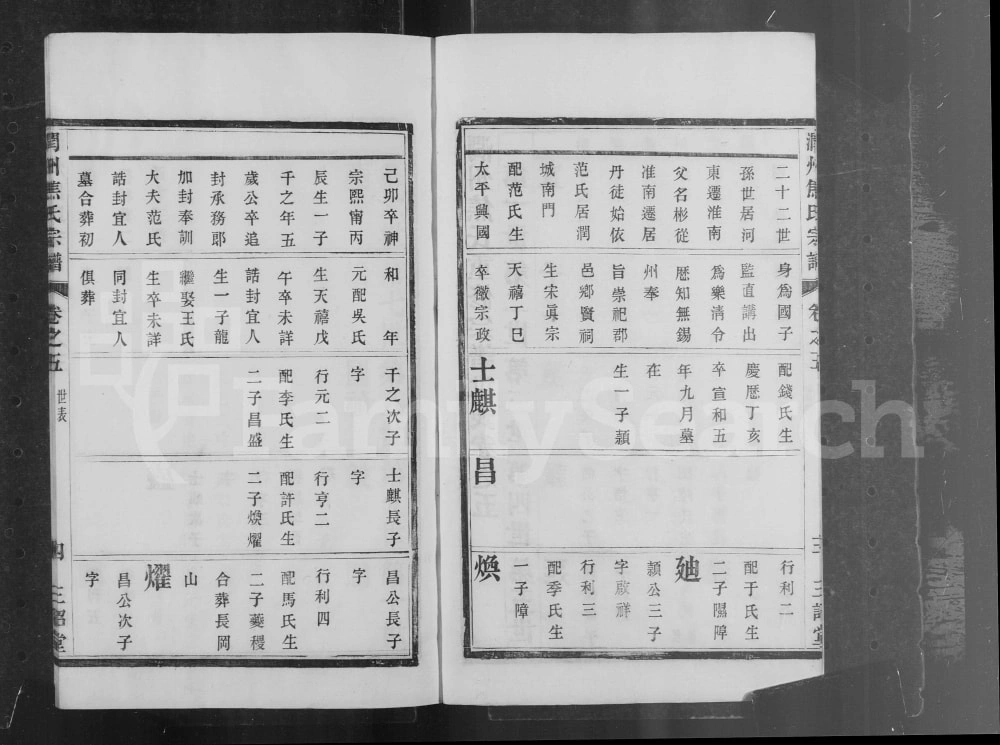 潤州焦氏宗譜
二十二世
孫世居河
東遷淮南
父名彬從
淮南遷居
丹徒始依
范氏居潤
城南門
配范氏生
太平興國
身爲國子
監直講出
爲樂清令
厯知無錫
州奉
旨崇祀郡
邑鄉賢祠
生宋眞宗
天禧丁巳
卒徽宗政
配錢氏生
慶厯丁亥
卒宣和五
年九月墓
在
生一子顯
士麒
昌
行利二
配于氏生
二子隰障
廸
顯公三子
字啟祥
行利三
配季氏生
一子障
煥
三詔堂
己卯卒神
宗熙甯丙
辰生一子
千之年五
歲公卒追
封承務郎
加封奉訓
大夫范氏
誥封宜人
墓合葬初
和年
元配吳氏
生天禧戊
午卒未詳
誥封宜人
生一子龍
繼娶王氏
生卒未詳
同封宜人
俱葬
千之次子
字
行元二
配李氏生
二子昌盛
士麒長子
字
行亨二
配許氏生
二子煥燿
昌公長子
字
行利四
配馬氏生
二子夔稷
合葬長岡
山
燿
昌公次子
字
潤州焦氏宗譜
卷之五
世表
四
三詔堂
FamilySearch